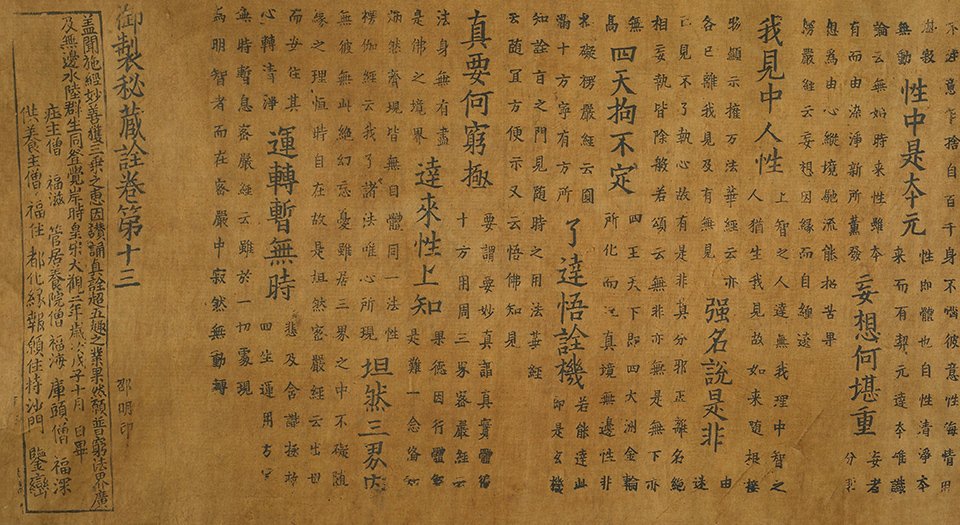 不逆意乍捨自百千身不惱彼意性海情
無動 性中是本元 性即體也自性清淨本
來而有契元達本唯識
論云無始時來性雖本
有而由染淨新所熏發 妄想何堪重 妄者分
想爲由心縱境馳流能招苦果
楞嚴經云妄想因緣而自纏遶
我見中人性 上智之人達無我理中智之
人猶生我見故如來隨根接
彰顯示權方法華經云亦
各已離我見及有無見 强名說是非 由迷
已見不了執心故有是非真分邪正離名絕
相妄執皆除般若頌云無非亦無是無下亦
無高 四天拘不定 四王天下即四大洲金輪
所化而 真境無邊性非
礙楞嚴經云圓
滿十方寧有方所 了達悟詮機 若能達此
即是玄機
知詮旨之門見隨時之用法華經
云隨宜方便示又云悟佛知見
真要何窮極 要謂要妙真謂真實體徧
十方用周三界密嚴經云
法身無有盡
是佛之境界 達來性上知 果德因行體無
是難一念僉知
炳然齊現皆無自體同一法性
楞伽經云我了諸法唯心所現 坦然三界內
無彼無此絕幻忘憂雖居三界之中不礙隨
緣之理恒時自在故是坦然密嚴經云出世
而安住其 悲及含識拯物
心轉清淨 運轉暫無時 四生運用方宜
無時暫息密嚴經云雖於一切處現
爲明智者而在密嚴中寂然無動轉
御製秘藏詮卷第十三
邵明印
蓋聞施經妙善獲三乘之惠因讚誦真詮超五趣之業果然願普窮法界廣
及無邊水陸群生同登覺岸時皇宋大觀二年歲次戊子十月 日畢
庄主僧 福滋 管居養院僧福海 庫頭僧 福深
供養主僧 福住 都化緣報願住持沙門 鑒巒